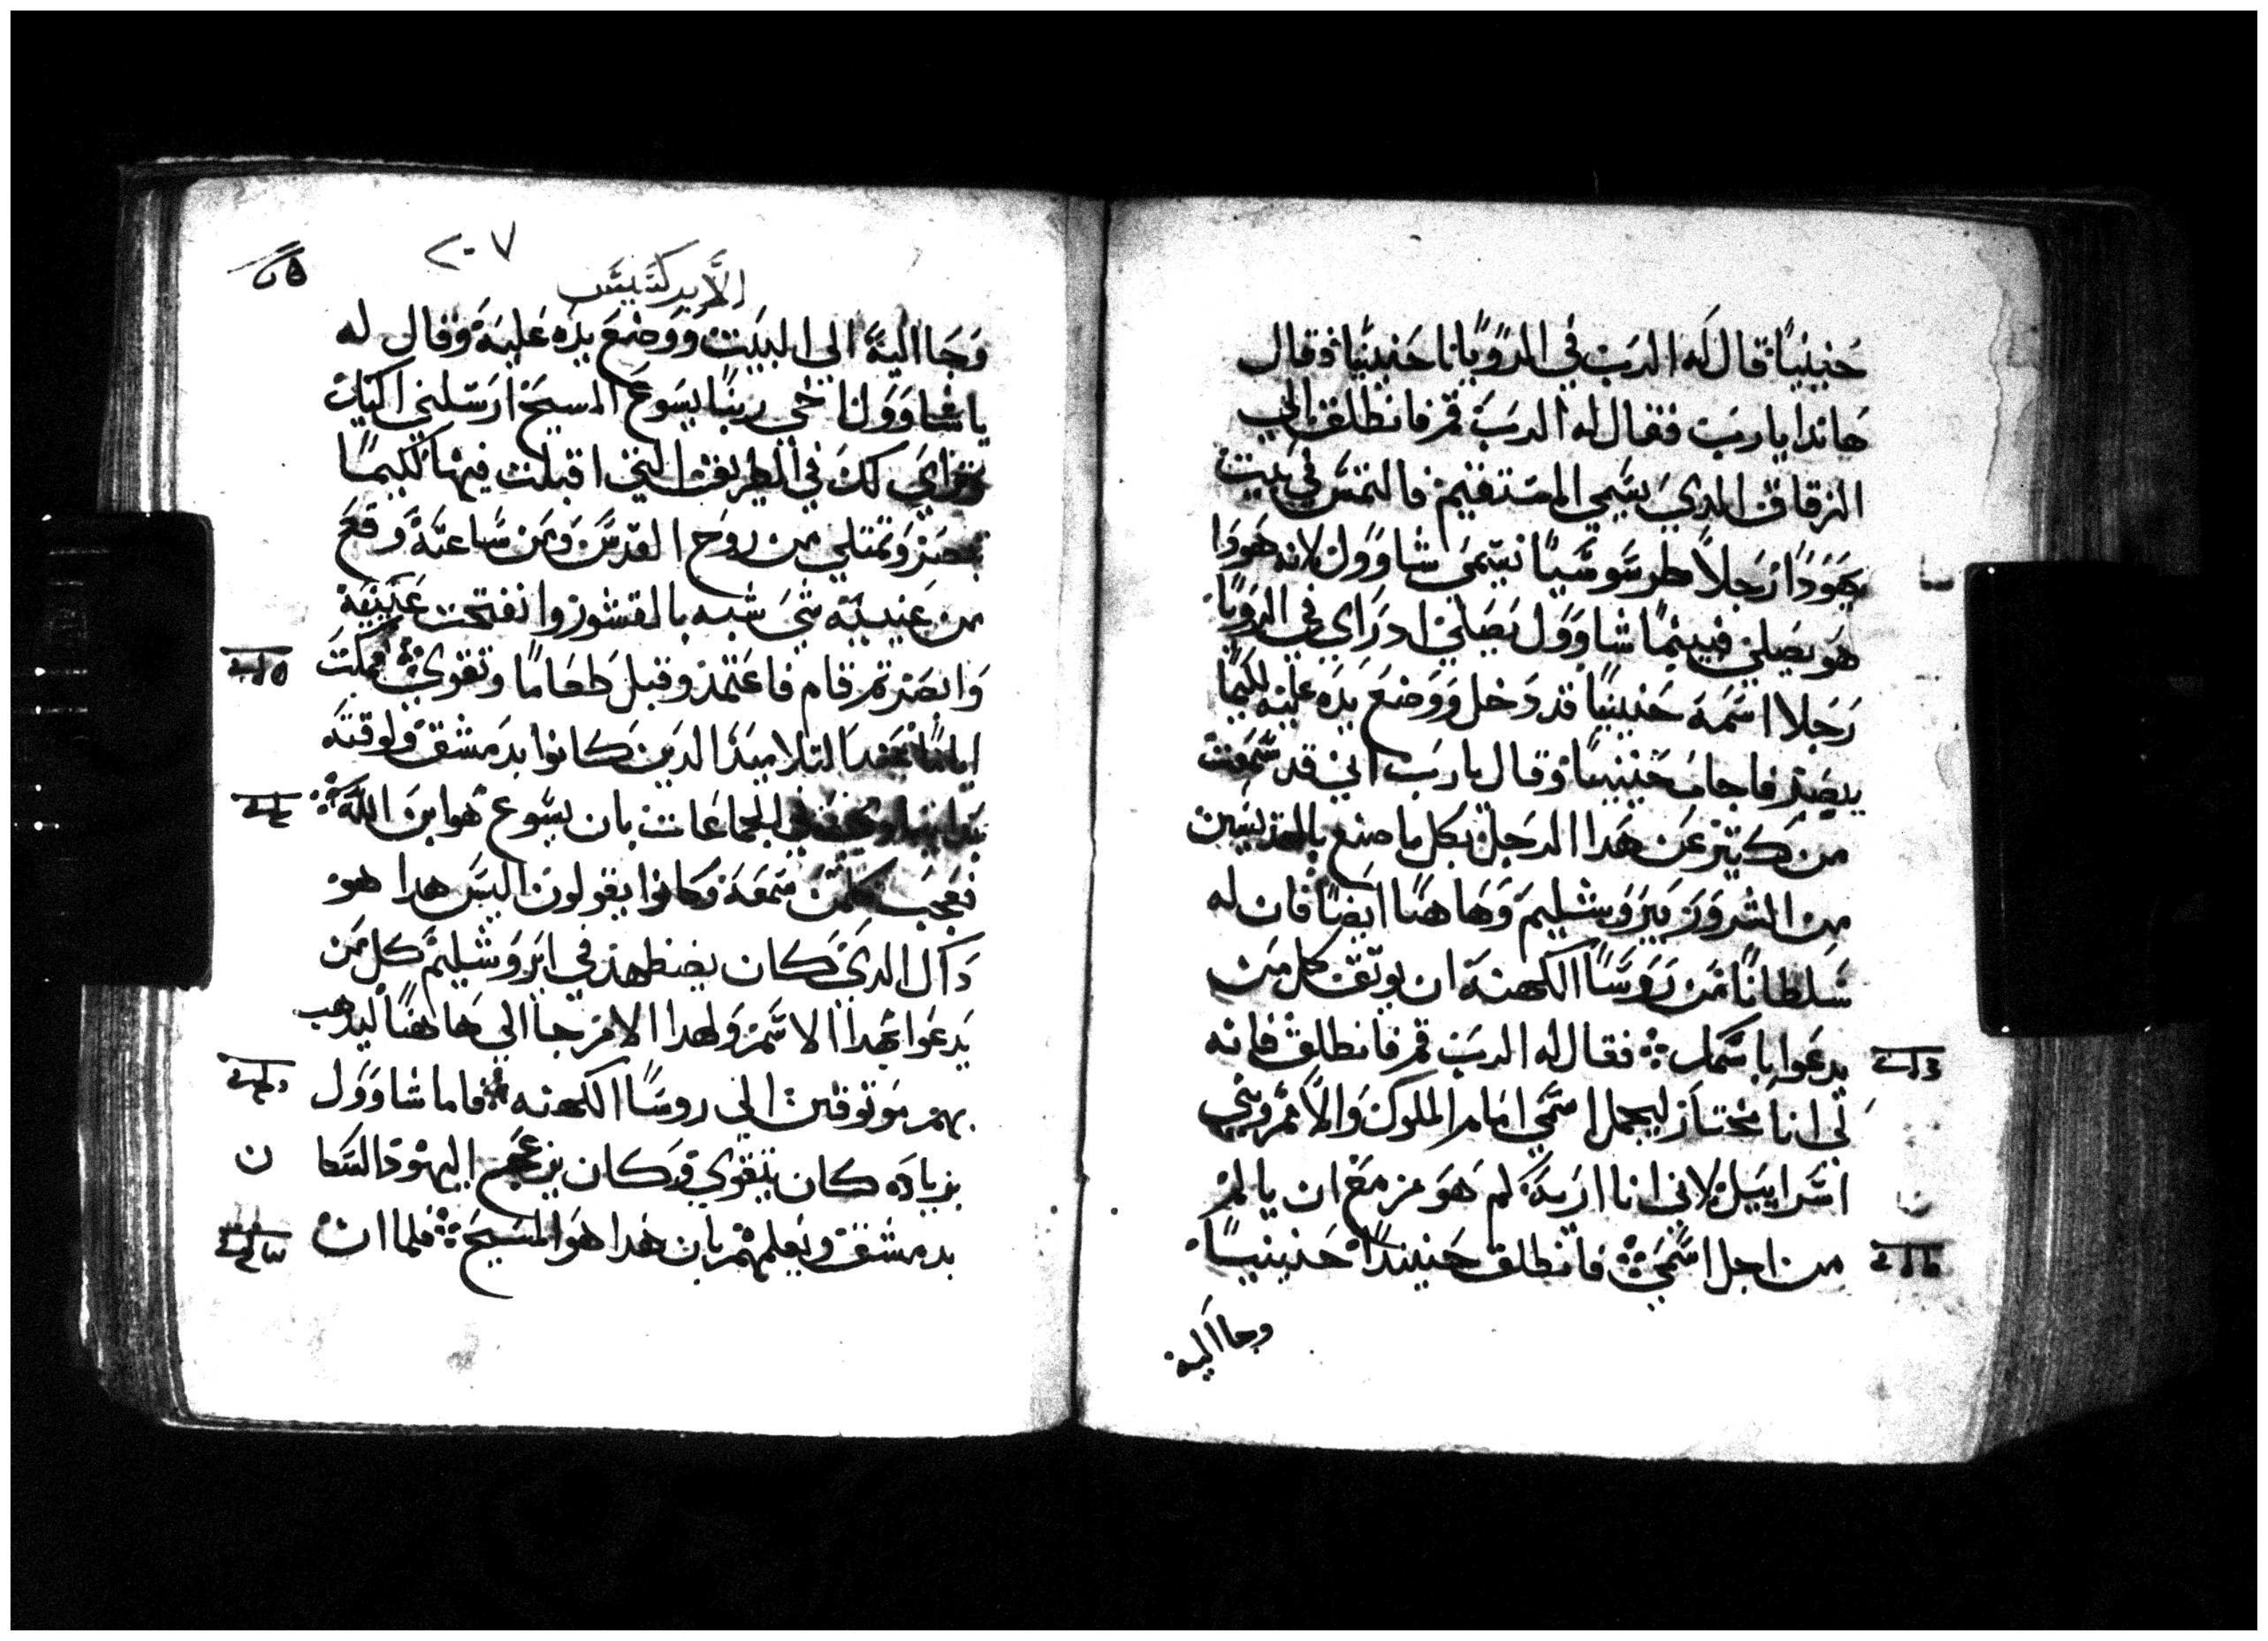 حنينيا قال له الرب في الرويا يا حنينيا وقال
هاندا يا رب فقال له الرب قم فانطلق الي
الزقاق الدي يسمي المستقيم فالتمس في بيت
يهودا رجلا طرسوسيا يسمي شاوول لانه هودا
هو يصلي فبينما شاوول يصلي اد راي في الرويا
رجلا اسمه حنينيا قد دخل ووضع يده عليه لكيما
يبصر فاجاب حنينيا وقال يا رب اني قد سمعت
من كتير عن هدا الرجل بكل ما صنع بالقديسين
من الشرور بيروشليم وها هنا ايضا فان له
سلطانا من روسا الكهنه ان يوتق كل من
يدعوا باسمك فقال له الرب قم فانطلق فانه
لي انا مختار ليحمل اسمي امام الملوك والامم وبني
اسراييل لاني انا اريه كم هو مزمع ان يالم
من اجل اسمي فانطلق حينيدا حنينيا
وجا اليه
٢٠٧
الابركسيس
وجا اليه الي البيت ووضع يده عليه وقال له
يا شاوول اخي ربنا يسوع المسيح ارسلني اليك
تراي لك في الطريق التي اقبلت فيها لكيما
تبصر وتمتلي من روح القدس ومن ساعته وقع
من عينيه شي شبه بالقشور وانفتحت عينيه
وابصر تم قام فاعتمد وقبل طعاما وتقوي فمكت
اياما عند التلاميد الدين كانوا بدمشق ولوقته
في الجماعات بان يسوع هو ابن الله
فعجب كلمن سمعه وكانوا يقولون اليس هدا هو
داك الدي كان يضطهد في ايروشليم كل من
يدعوا بهدا الاسم ولهدا الامر جا الي ها هنا ليدهب
بهم موتوقين الي روسا الكهنه فاما شاوول
بزياده كان يتقوي وكان يزعج اليهود السكا
ن
بدمشق ويعلمهم بان هدا هو المسيح فلما ان